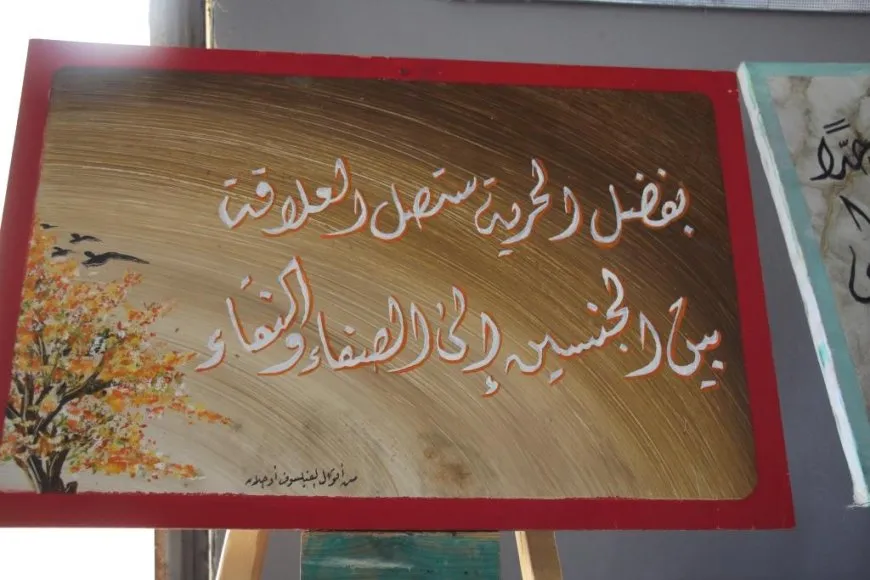 بفضل الحرية ستصل العلاقة
بين الجنسين إلى الصفاء والنقاء
من أقوال الفيلسوف أوجلان
جدًا